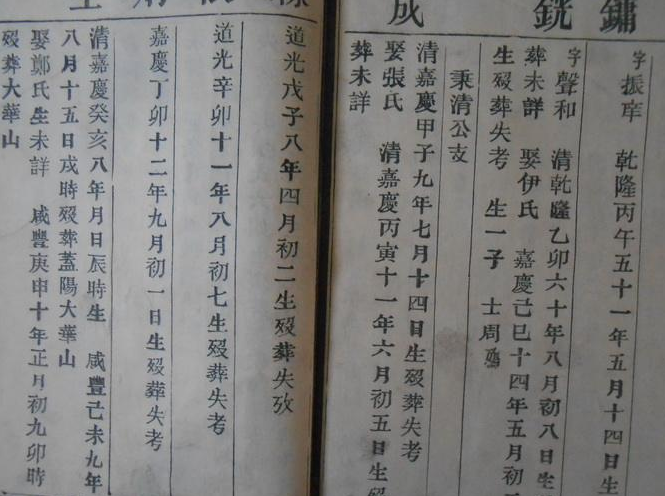 鏽
銑
成
字振庠 乾隆丙午五十一年五月十四日生
字聲和 清乾隆乙卯六十年八月初八日生
葬未詳 娶伊氏 嘉慶己巳十四年五月初
生歿葬失考 生一子 士周
秉清公支
清嘉慶甲子九年七月十四日生歿葬失考
娶張氏 清嘉慶丙寅十一年六月初五日生歿
葬未詳
道光戊子八年四月初二生歿葬失攷
道光辛卯十一年八月初七生歿葬失考
嘉慶丁卯十二年九月初一日生歿葬失考
清嘉慶癸亥八年月日辰時生 咸豐己未九年
八月十五日戌時歿葬蓋陽大華山
娶鄭氏生未詳 咸豐庚申十年正月初九卯時
歿葬大華山